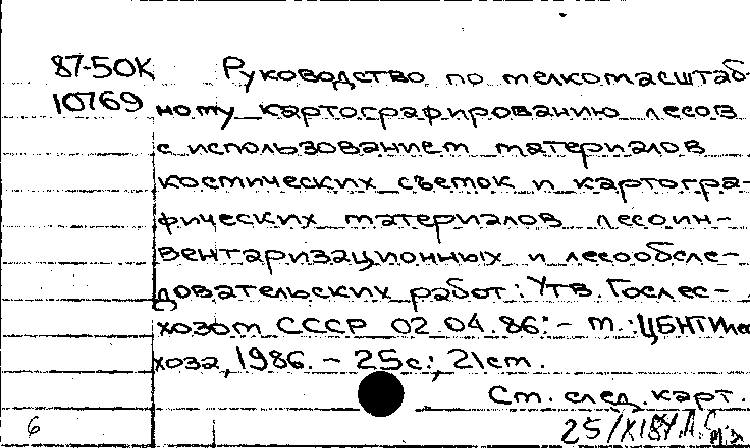 87-50К Руководство по мелкомасштаб-
10769 ному картографированию лесов
с использованием материалов
космических съемок и картогра-
фических материалов лесоин-
вентаризационных и лесообсле-
довательских работ: Утв. Гослес-
хозом СССР 02.04.86.- М.: ЦБНТИлес
хоза, 1986. - 25с.; 21см.
Ст. след. карт.
6 25/XI87